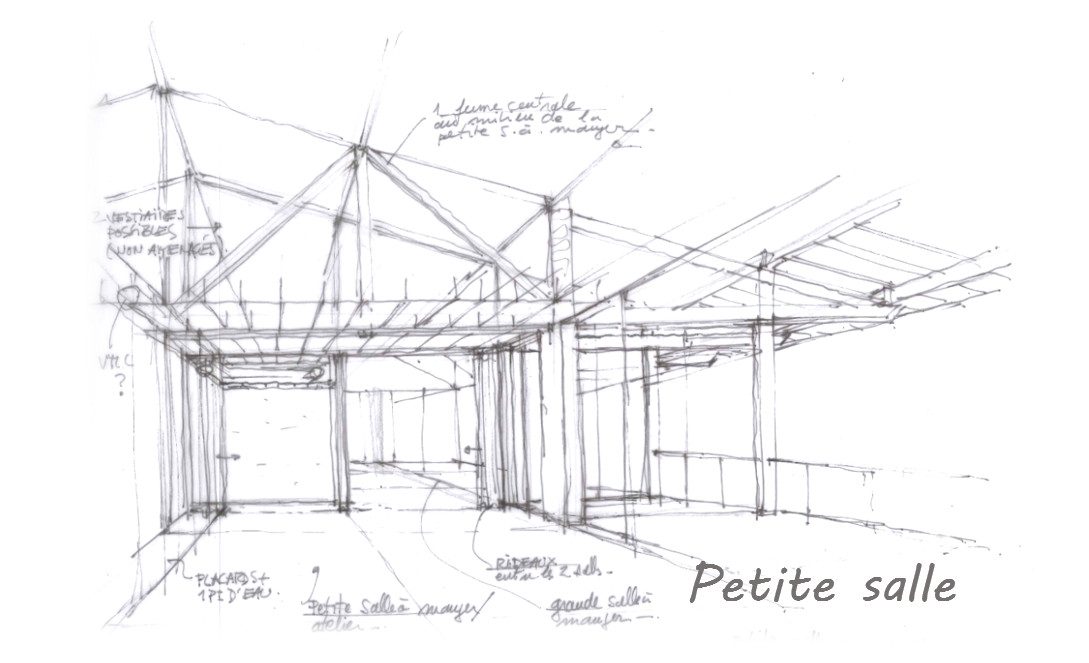 1 ferme centrale
au milieu de la
petite s. à. manger.
2 VESTIAIRES
POSSIBLES
(NON AMENAGÉS)
VMC
?
PLACARDS +
1 PT D'EAU.
Petite salle à manger/
atelier
RIDEAUX
entre les 2 salles.
grande salle à
manger
Petite salle